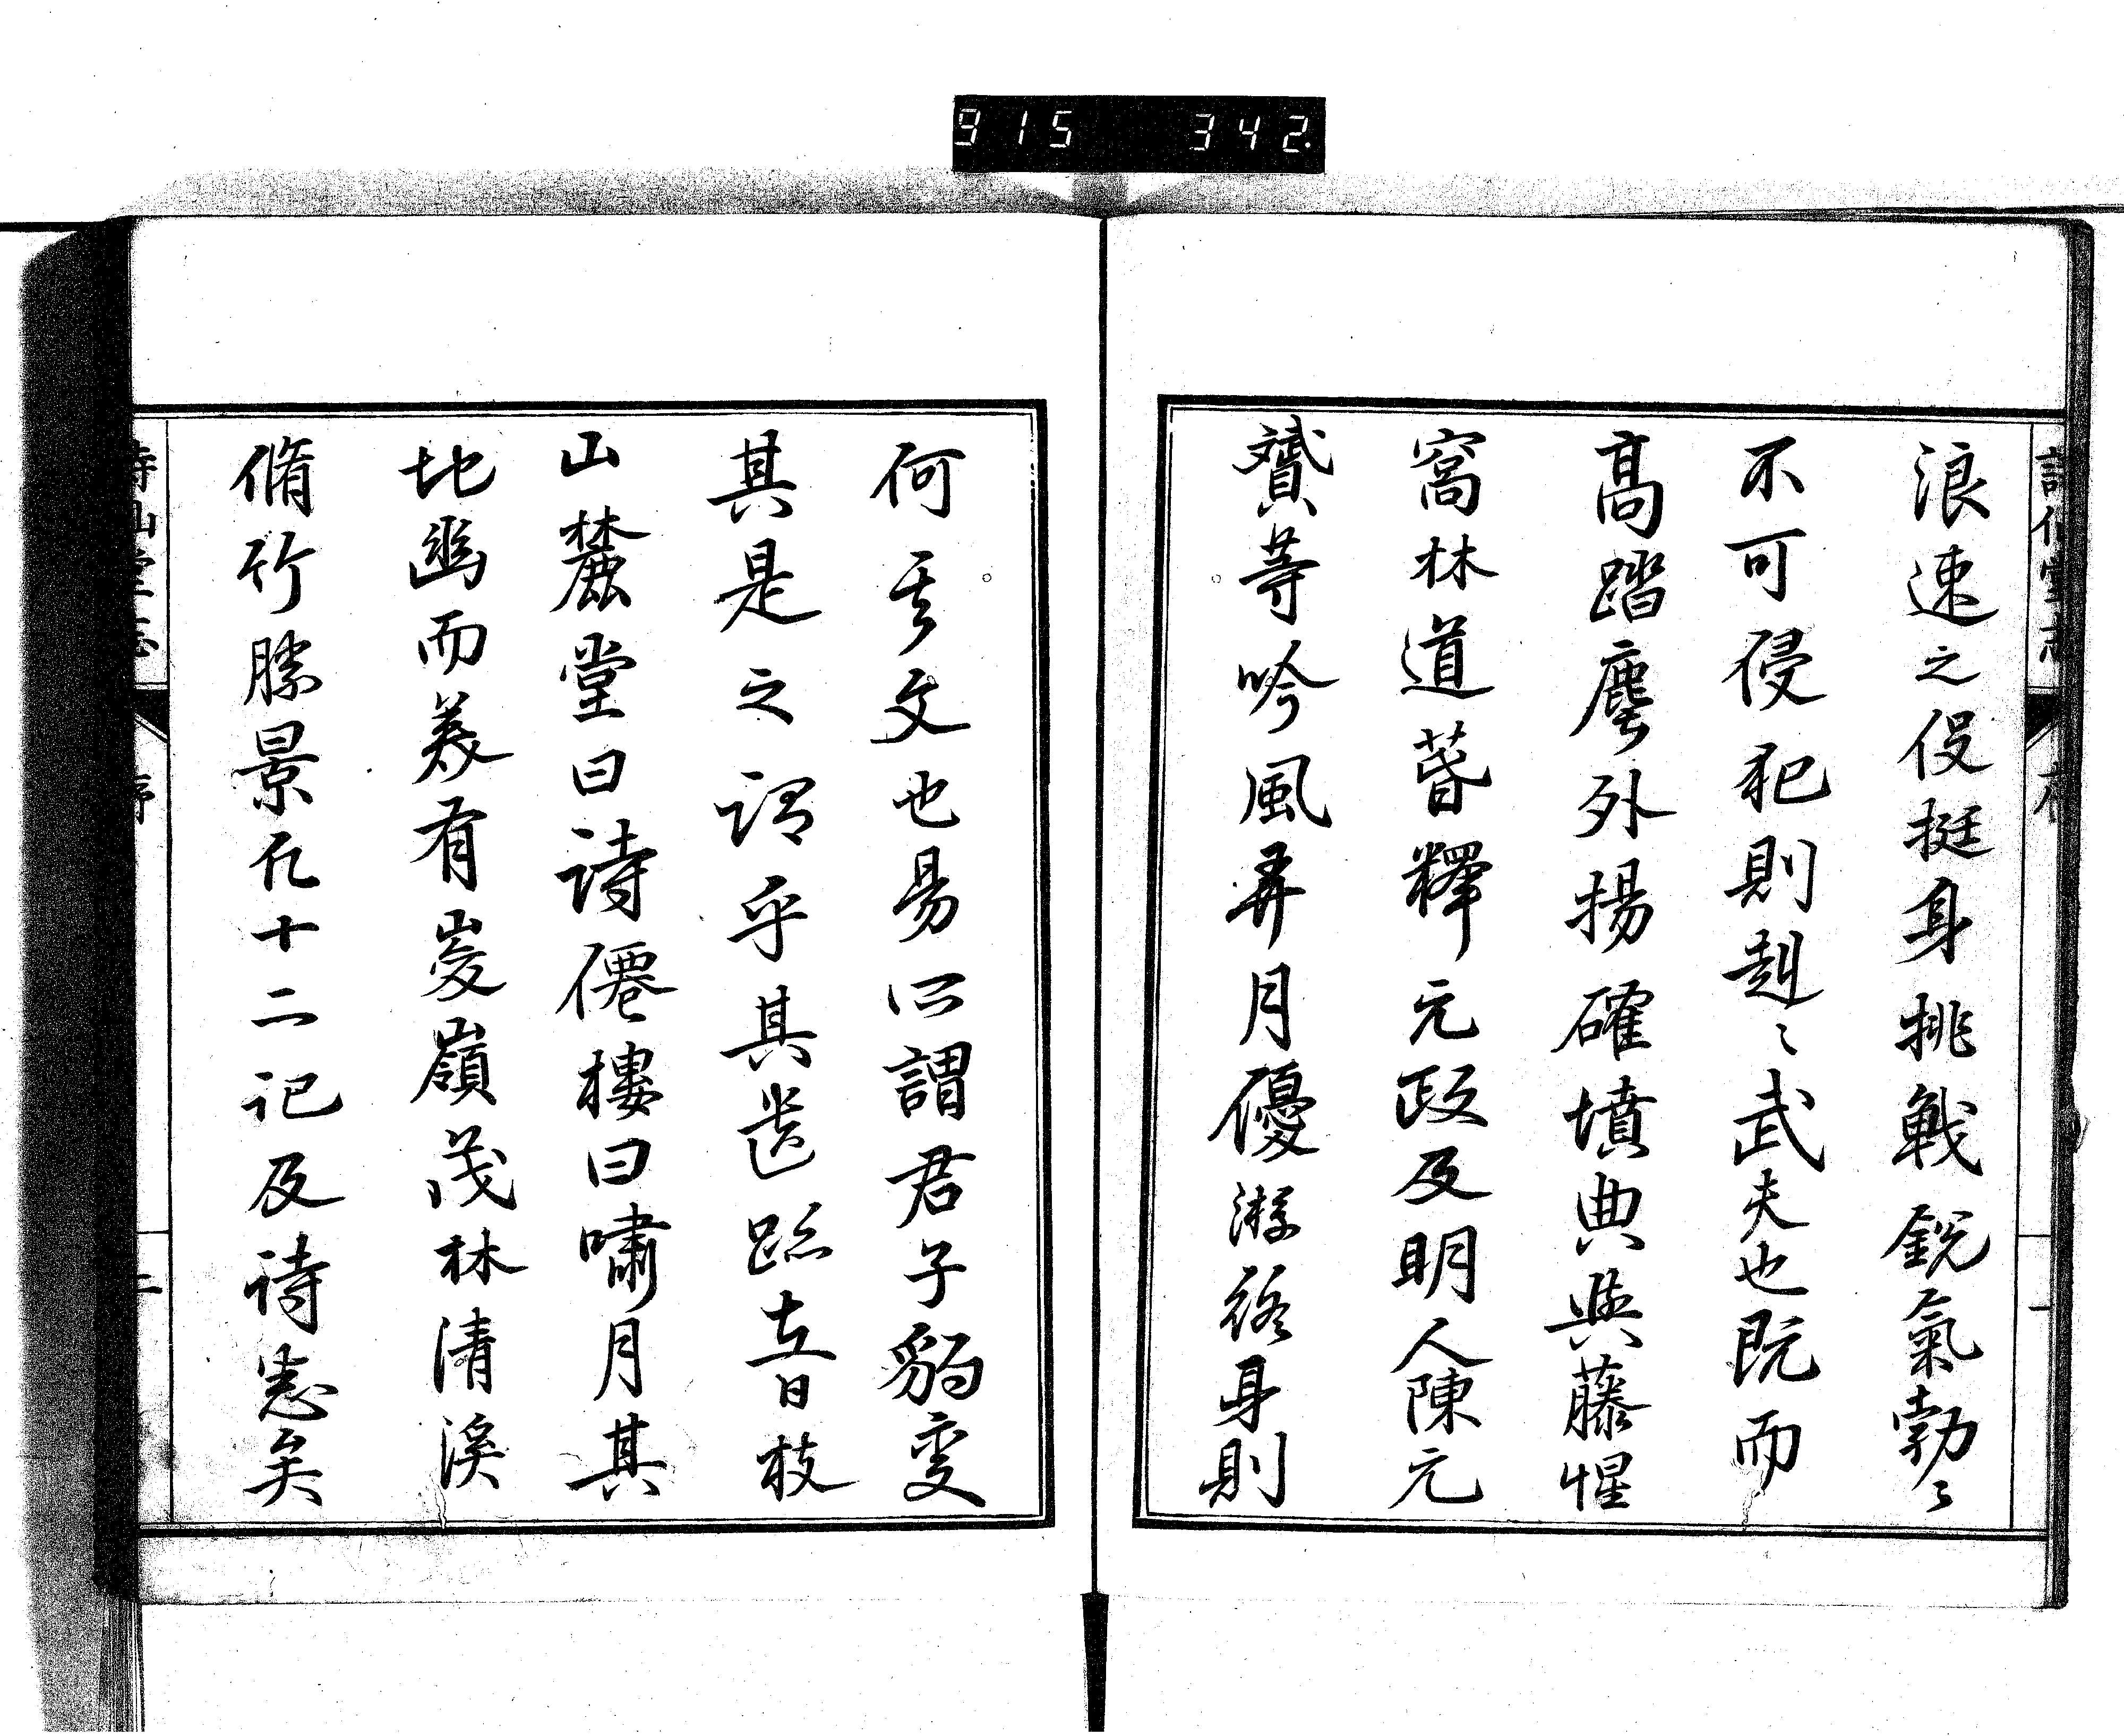 915 342.
浪速之役挺身挑戦鋭氣勃〻
不可侵犯則赳〻武夫也既而
高踏塵外揚確墳典與藤惺
窩林道春釋元政及明人陳元
贇等吟風弄月優游終身則
何其文也易所謂君子豹變
其是之謂乎其遺跡在音枝
山麓堂曰詩僊樓曰嘯月其
地幽而美有峻嶺茂林清溪
脩竹勝景凡十二記及詩悉矣
詩仙堂志 序 二